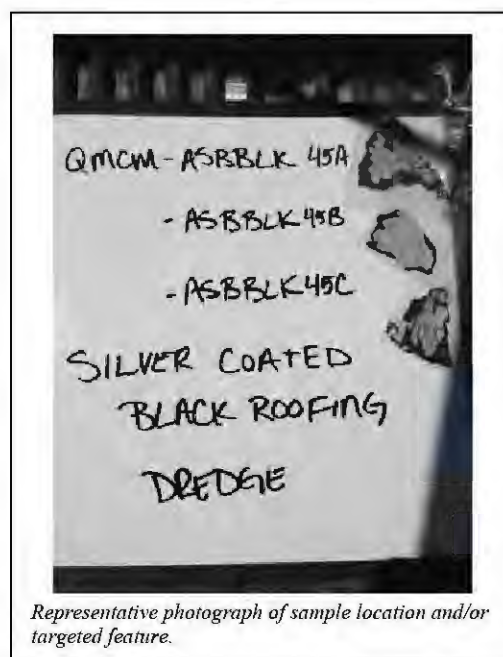 QMCM-ASBBLK 45A
-ASBBLK45B
-ASBBLK45C
SILVER COATED
BLACK ROOFING
DREDGE
Representative photograph of sample location and/or
targeted feature.